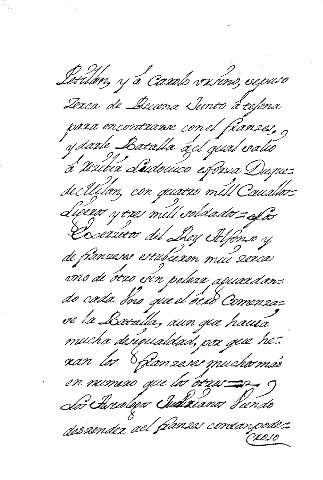 Petillan, y à Carolo Vrsino, se puso
zerca de Buena Junto à tesena
para encontrarse con el franzes,
y darle Batalla à el qual salio
à rezibir Ludouico esforza Duque
de Milan, con quatro mill Cauallos
Lijeros y tres mill soldados = Los
Exerzitos del Rey Alfonso y
de franzeses estubieron mui zerca
uno de otro sin pelear aguardan-
do cada uno que el otro Comenza-
se la Batalla, aun que hauia
mucha desigualdad, por que he-
ran los franzeses mucho mas
en numero que los otros =
Los Astrologos Judiziarios Viendo
deszender al franzes con tan pode-
roso